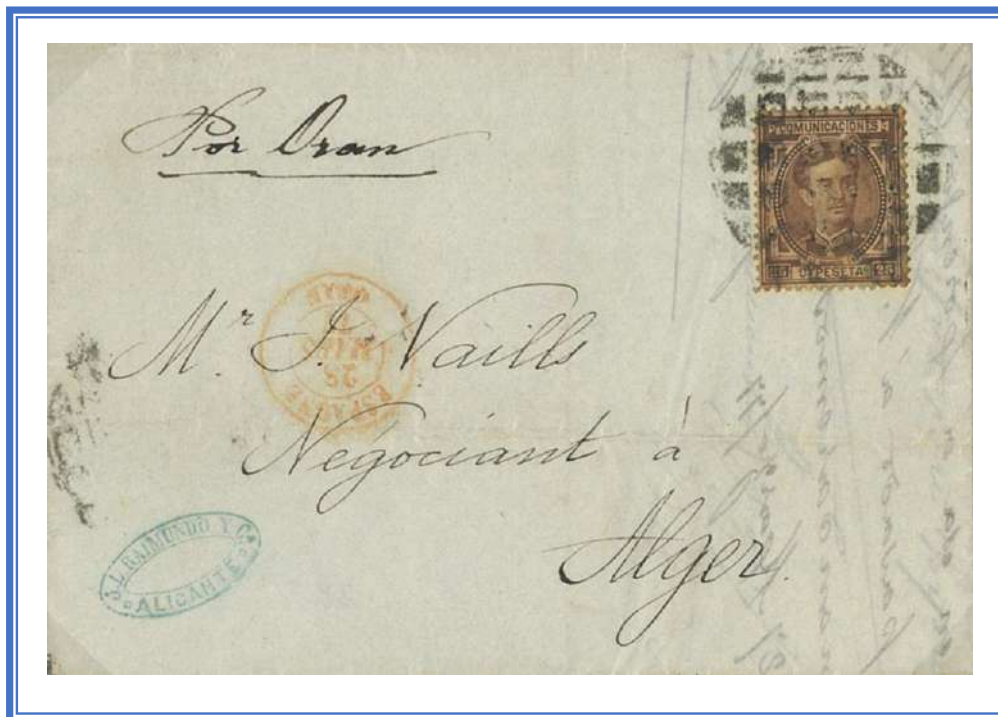 Por Oran
COMUNICACIONES
25 C. PESETA 25
ORAN
MARS
28
ESPAGNE
Mr. J. Vaills
Negociant à
Alger.
J. L. RAIMUNDO Y Ca.
ALICANTE